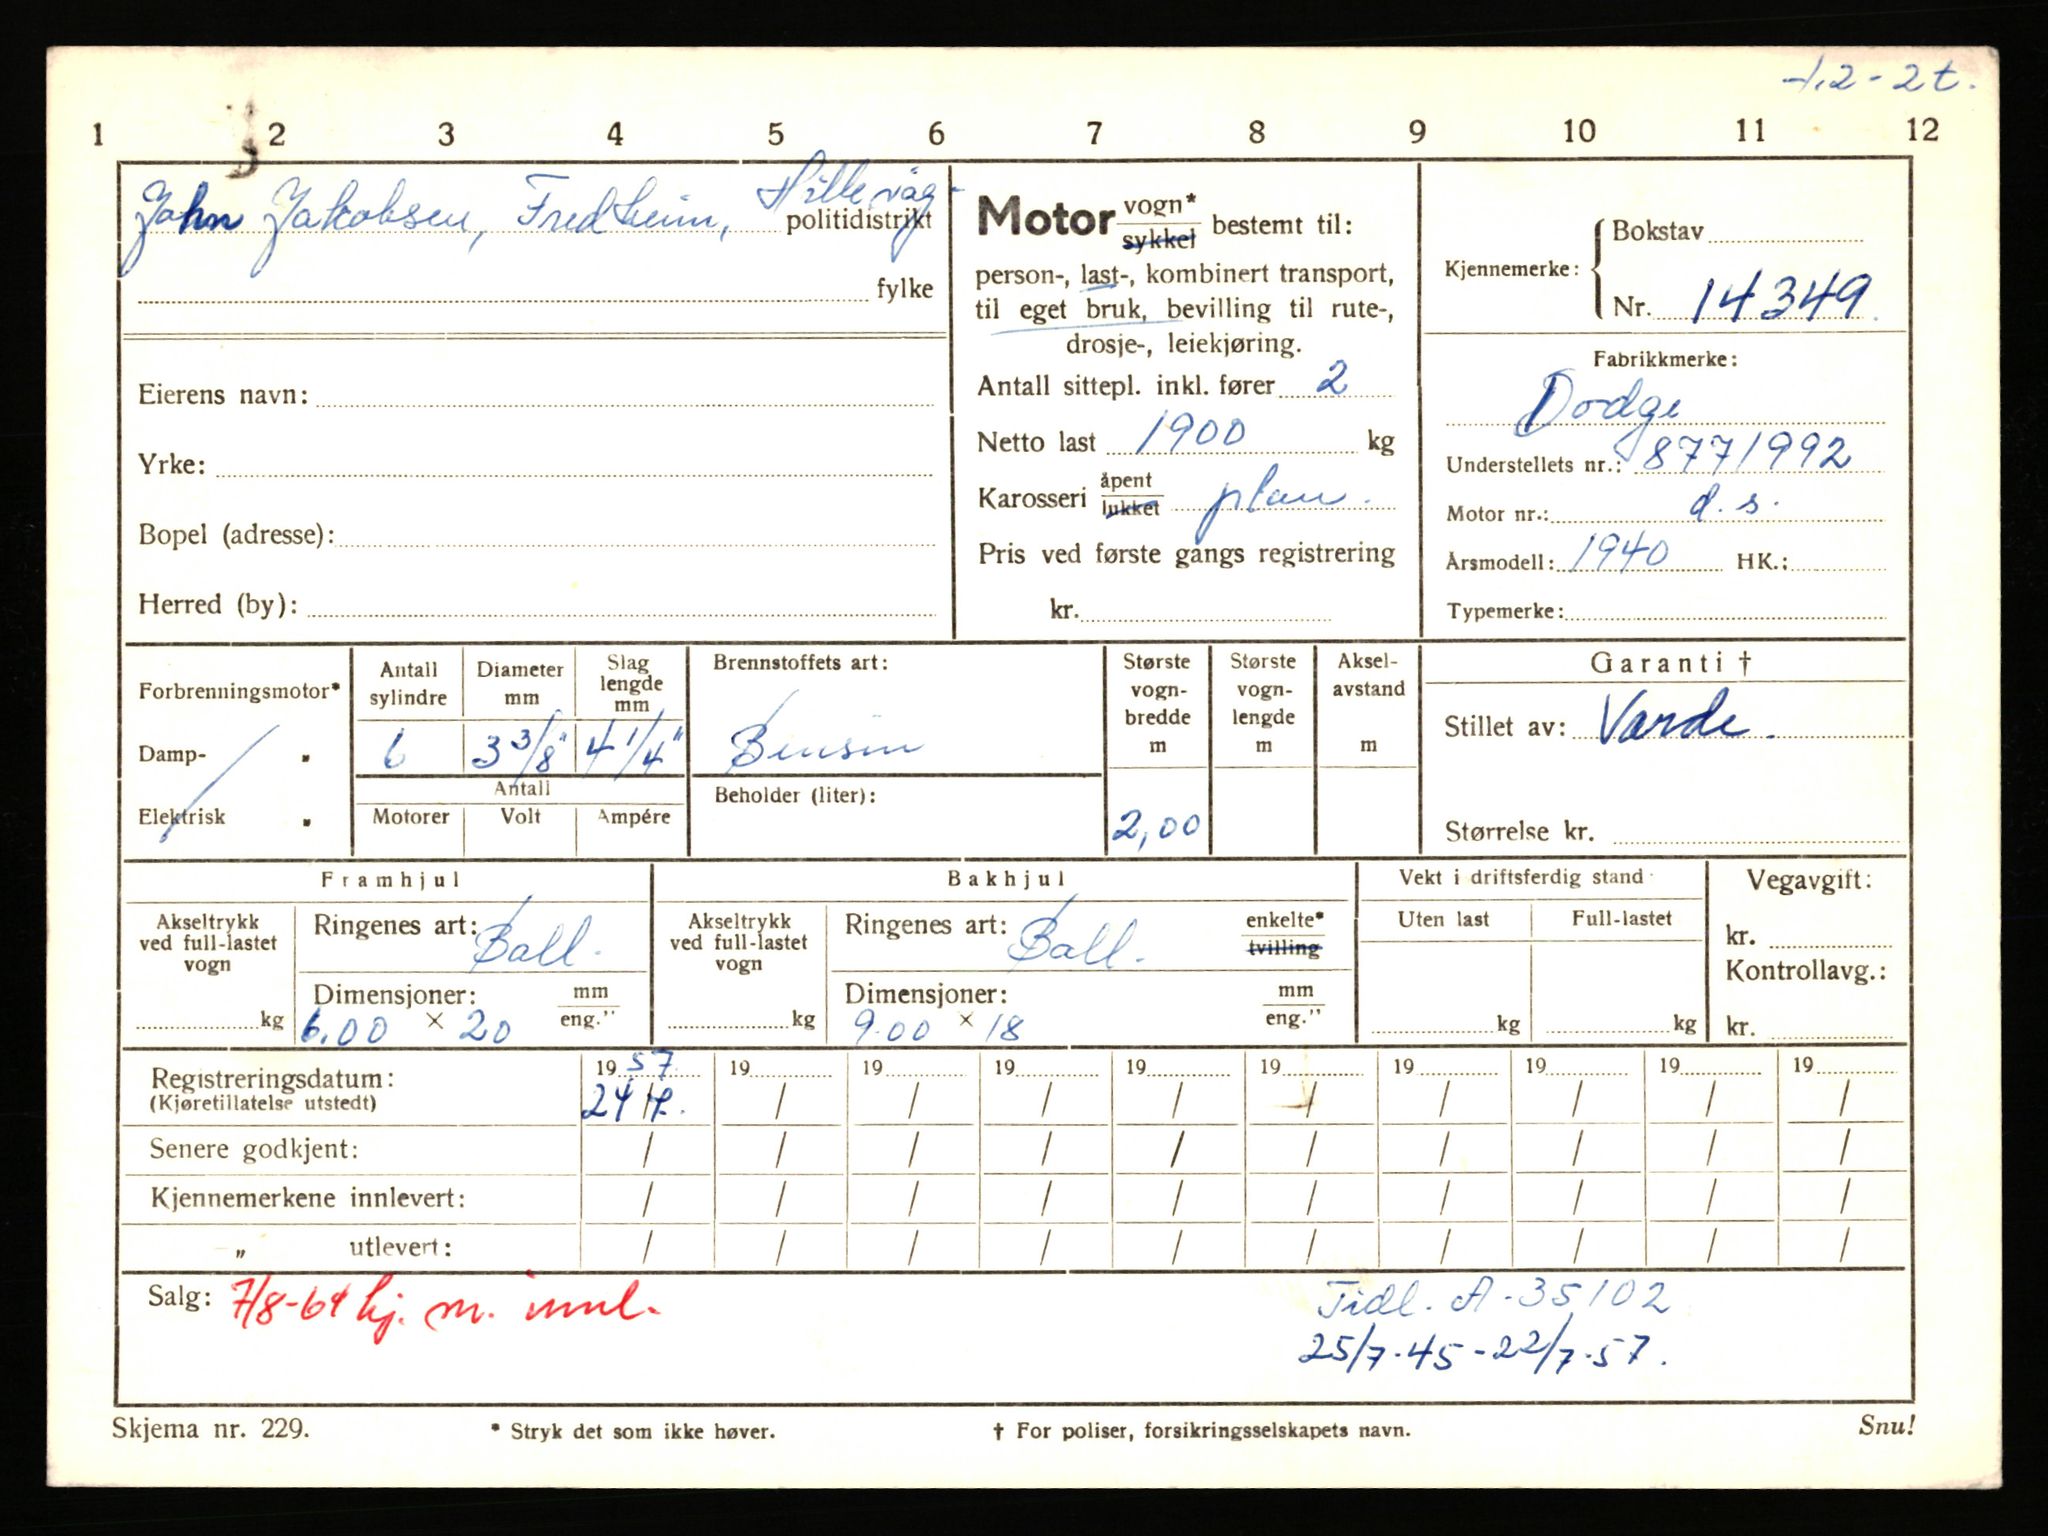 1.2 - 2t.
1 2 3 4 5 6 7 8 9 10 11 12
John Jakobsen, Fredheim, Hillevåg politidistrikt
fylke
Eierens navn:
Yrke:
Bopel (adresse):
Herred (by):
Motor vogn* sykkel bestemt til:
person-, last-, kombinert transport,
til eget bruk, bevilling til rute-,
drosje-, leiekjøring.
Antall sittepl. inkl. fører 2
Netto last 1900 kg
Karosseri åpent lukket plan.
Pris ved første gangs registrering
kr.
Kjennemerke: Bokstav
Nr. 14349
Fabrikkmerke:
Dodge
Understellets nr.: 8771992
Motor nr.: d.s.
Årsmodell: 1940 HK.:
Typemerke:
Forbrenningsmotor*
Damp- "
Elektrisk "
Antall sylindre Diameter mm Slag lengde mm
6 3 3/8" 4 1/4"
Antall
Motorer Volt Ampére
Brennstoffets art:
Bensin
Beholder (liter):
Største vogn- bredde m
2,00
Største vogn- lengde m
Aksel- avstand m
Garanti †
Stillet av: Varde.
Størrelse kr.
Framhjul
Akseltrykk ved full-lastet vogn
kg
Ringenes art: Ball.
Dimensjoner: mm eng."
6.00 × 20
Bakhjul
Akseltrykk ved full-lastet vogn
kg
Ringenes art: Ball. enkelte* tvilling
Dimensjoner: mm eng."
9.00 × 18
Vekt i driftsferdig stand
Uten last Full-lastet
kg kg
Vegavgift:
kr.
Kontrollavg.:
kr.
Registreringsdatum: 1957 19 19 19 19 19 19 19 19 19
(Kjøretillatelse utstedt) 24/7. / / / / / / / / /
Senere godkjent: / / / / / / / / / /
Kjennemerkene innlevert: / / / / / / / / / /
„ utlevert: / / / / / / / / / /
Salg: 7/8-64 kj. m. innl.
Tidl. A-35102
25/7.45 - 22/7.57.
Skjema nr. 229. * Stryk det som ikke høver. † For poliser, forsikringsselskapets navn. Snu!